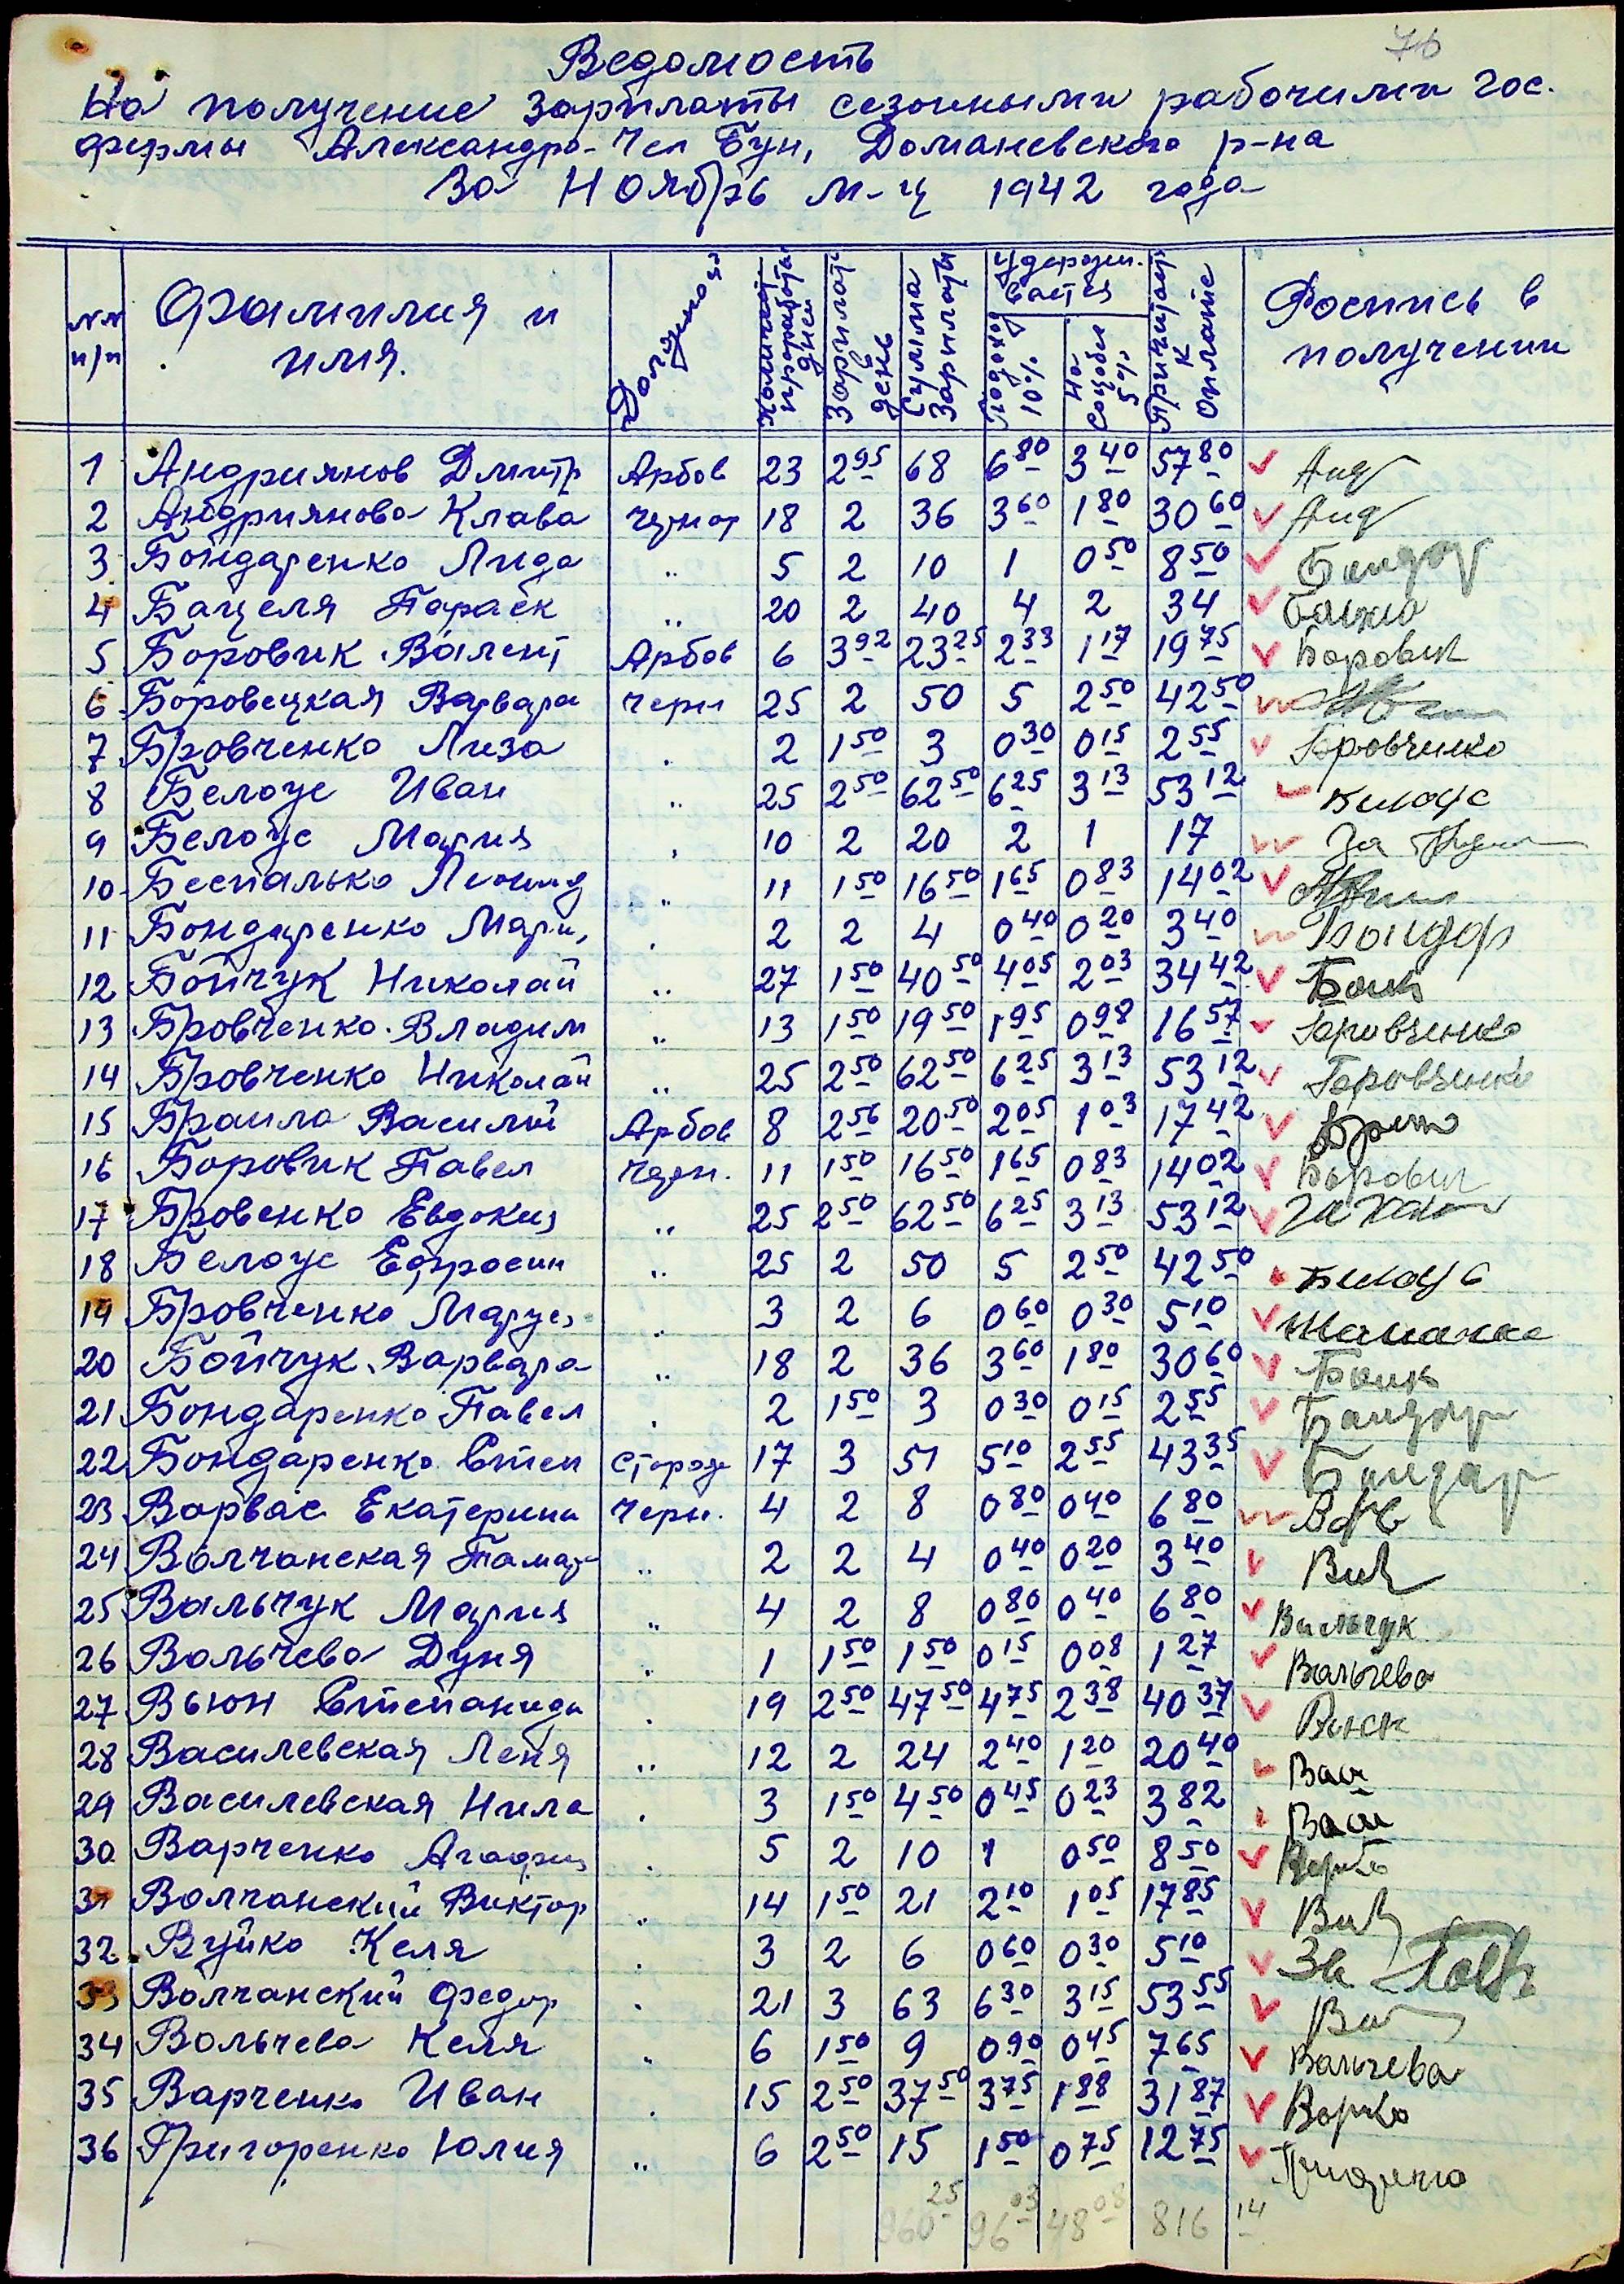 76
Ведомость
На получение зарплаты сезонными рабочими гос.
фермы Александро-Чел Бун, Доманевского р-на
За Ноябрь м-ц 1942 года
№№ п/п Фамилия и имя. Должность Количест. проработа дней Зарплат в день Сумма Зарплаты Удержи-вается Подоход 10% На соцобес 5% Причитает К Оплате Роспись в получении
1 Андриянов Дмитр Арбов 23 2 95 68 6 80 3 40 57 80 Анд
2 Андриянова Клава чернор 18 2 36 3 60 1 80 30 60 Анд
3 Бондаренко Лида " 5 2 10 1 0 50 8 50 Бондар
4 Бацеля Параск " 20 2 40 4 2 34
5 Боровик Валент Арбов 6 3 92 23 25 2 33 1 17 19 75 Боровик
6 Боровецкая Варвара черн 25 2 50 5 2 50 42 50
7 Бровченко Лиза " 2 1 50 3 0 30 0 15 2 55 Бровченко
8 Белоус Иван " 25 2 50 62 50 6 25 3 13 53 12 Билоус
9 Белоус Мария " 10 2 20 2 1 17 За
10 Беспалько Леонид " 11 1 50 16 50 1 65 0 83 14 02
11 Бондаренко Мари, " 2 2 4 0 40 0 20 3 40 Бондар
12 Бойчук Николай " 27 1 50 40 50 4 05 2 03 34 42 Боик
13 Бровченко Владим " 13 1 50 19 50 1 95 0 98 16 57 Бровченко
14 Бровченко Николай " 25 2 50 62 50 6 25 3 13 53 12 Бровченко
15 Браила Василий Арбов 8 2 56 20 50 2 05 1 03 17 42
16 Боровик Павел черн. 11 1 50 16 50 1 65 0 83 14 02 Боровик
17 Бровенко Евдокия " 25 2 50 62 50 6 25 3 13 53 12 За
18 Белоус Ефросин " 25 2 50 5 2 50 42 50 Билоус
19 Бровченко Маруся " 3 2 6 0 60 0 30 5 10
20 Бойчук Варвара " 18 2 36 3 60 1 80 30 60 Боик
21 Бондаренко Павел " 2 1 50 3 0 30 0 15 2 55 Бондар
22 Бондаренко Степ сторож 17 3 51 5 10 2 55 43 35 Бондар
23 Варвас Екатерина черн. 4 2 8 0 80 0 40 6 80
24 Волчанская Тамар " 2 2 4 0 40 0 20 3 40
25 Вальчук Мария " 4 2 8 0 80 0 40 6 80 Вильчук
26 Вольчева Дуня " 1 1 50 1 50 0 15 0 08 1 27 Вольчева
27 Вьюн Степанида " 19 2 50 47 50 4 75 2 38 40 37
28 Василевская Леня " 12 2 24 2 40 1 20 20 40 Вас
29 Василевская Нила " 3 1 50 4 50 0 45 0 23 3 82 Вас
30 Варченко Агафия " 5 2 10 1 0 50 8 50
31 Волчанский Виктор " 14 1 50 21 2 10 1 05 17 85
32 Вуйко Келя " 3 2 6 0 60 0 30 5 10 За
33 Волчанский Федор " 21 3 63 6 30 3 15 53 55
34 Вольчева Келя " 6 1 50 9 0 90 0 45 7 65 Вольчева
35 Варченко Иван " 15 2 50 37 50 3 75 1 88 31 87
36 Григоренко Юлия " 6 2 50 15 1 50 0 75 12 75
960 25 96 03 48 08 816 14